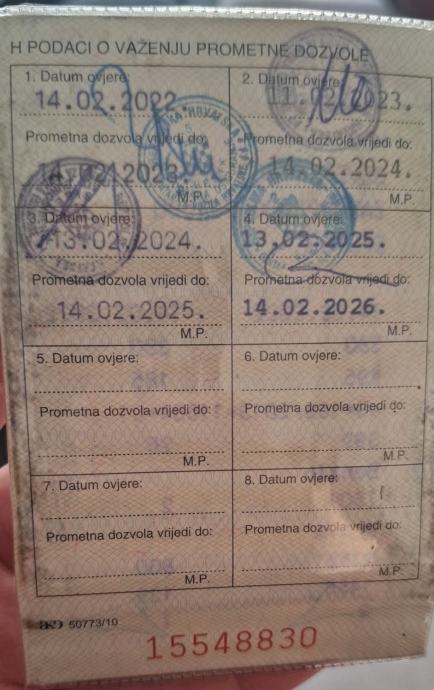 H PODACI O VAŽENJU PROMETNE DOZVOLE
1. Datum ovjere:
14.02.2022.
Prometna dozvola vrijedi do:
14.02.2023.
M.P.
2. Datum ovjere:
23.
Prometna dozvola vrijedi do:
14.02.2024.
M.P.
3. Datum ovjere:
13.02.2024.
Prometna dozvola vrijedi do:
14.02.2025.
M.P.
4. Datum ovjere:
13.02.2025.
Prometna dozvola vrijedi do:
14.02.2026.
M.P.
5. Datum ovjere:
Prometna dozvola vrijedi do:
M.P.
6. Datum ovjere:
Prometna dozvola vrijedi do:
M.P.
7. Datum ovjere:
Prometna dozvola vrijedi do:
M.P.
8. Datum ovjere:
Prometna dozvola vrijedi do:
M.P.
50773/10
15548830